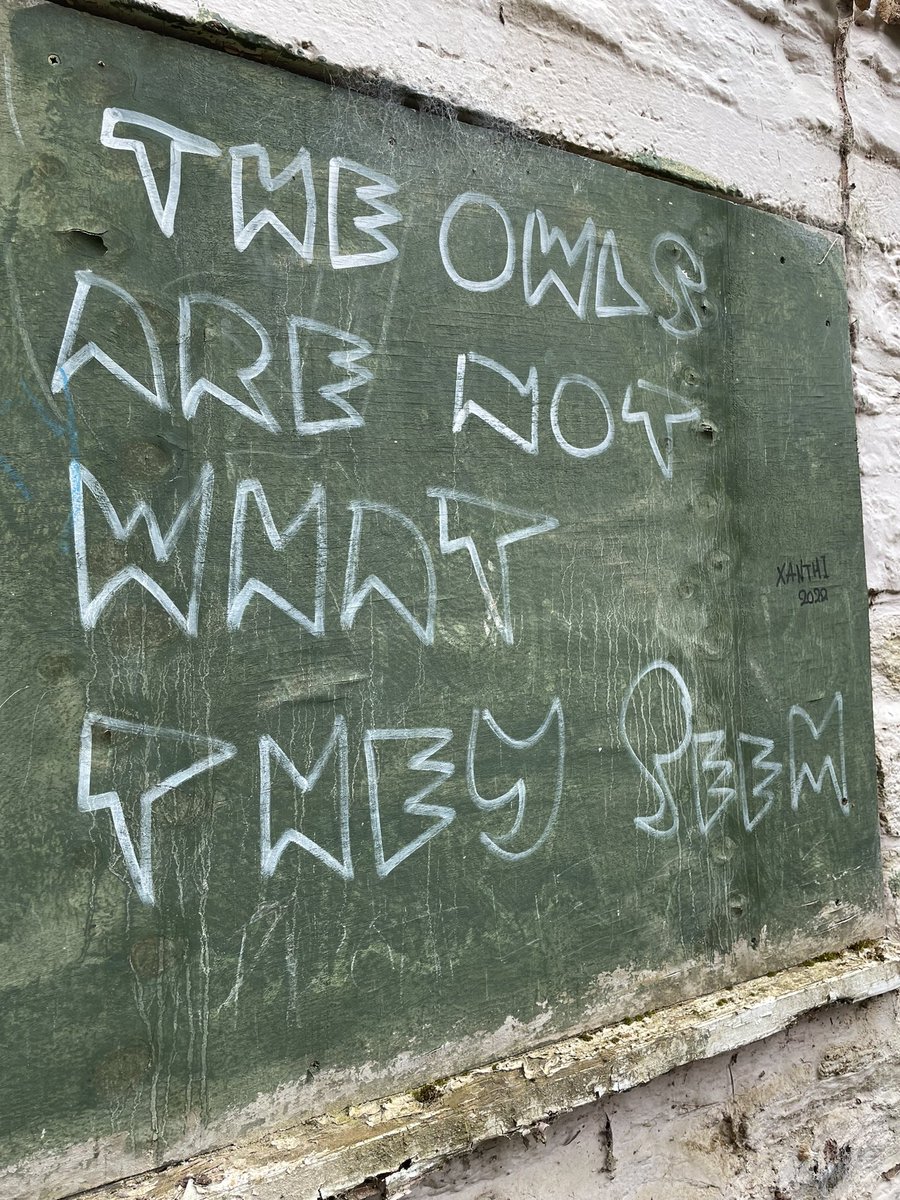 THE OWLS
ARE NOT
WHAT
THEY SEEM
XANTHI
2022